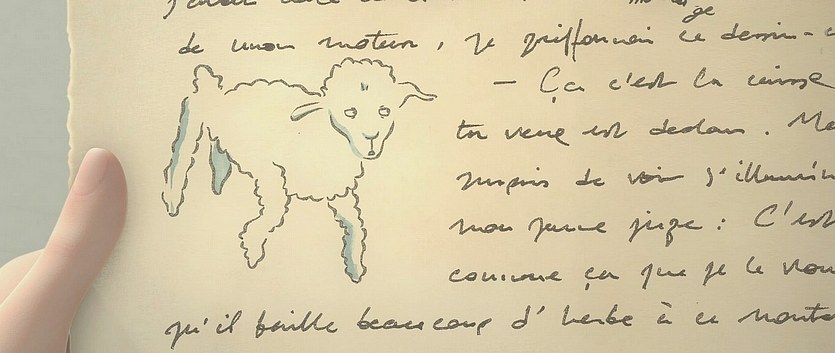 de mon moteur, je griffonnai ce dessin-
— Ça c'est la caisse
tu veux est dedans.
surpris de voir s'illumin
mon jeune juge : C'est
comme ça que je le vou
qu'il faille beaucoup d'herbe à ce mouto